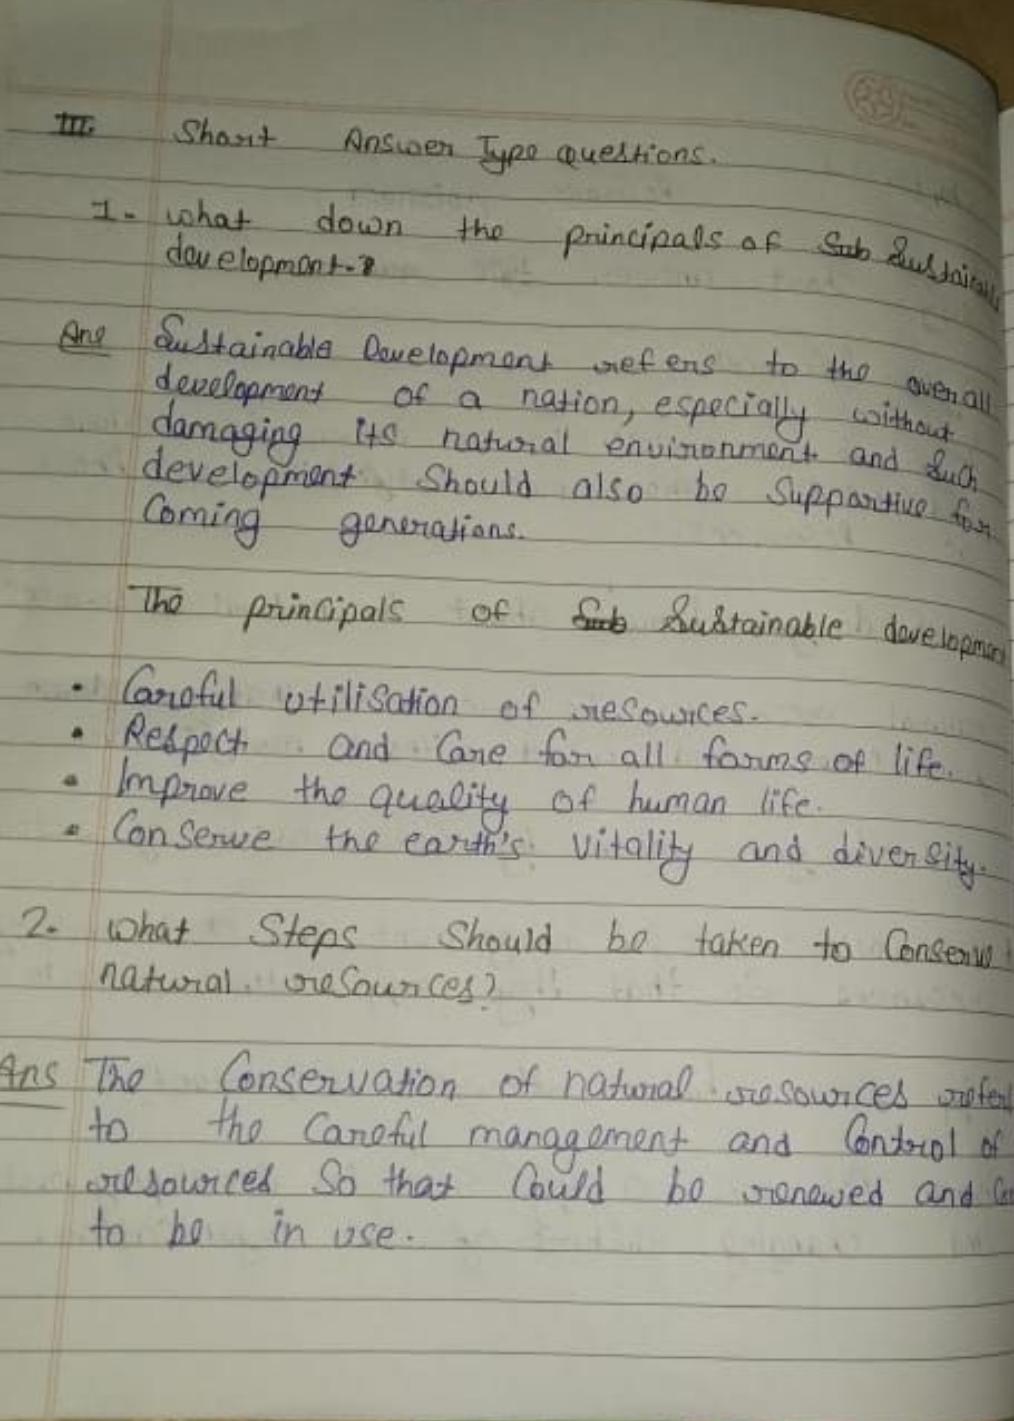 III. Short Answer Type questions.
1- what down the principals of Sub Sustainable
development-?
Ans Sustainable Development refers to the overall
development of a nation, especially without
damaging its natural environment and such
development should also be supportive for
Coming generations.
The principals of Sub Sustainable development
• Careful utilisation of resources.
• Respect and Care for all forms of life.
• Improve the quality of human life.
• Conserve the earth's vitality and diversity.
2. What Steps Should be taken to Conserve
natural resources?
Ans The Conservation of natural resources refer
to the Careful management and Control of
resources So that Could be renewed and
to be in use.